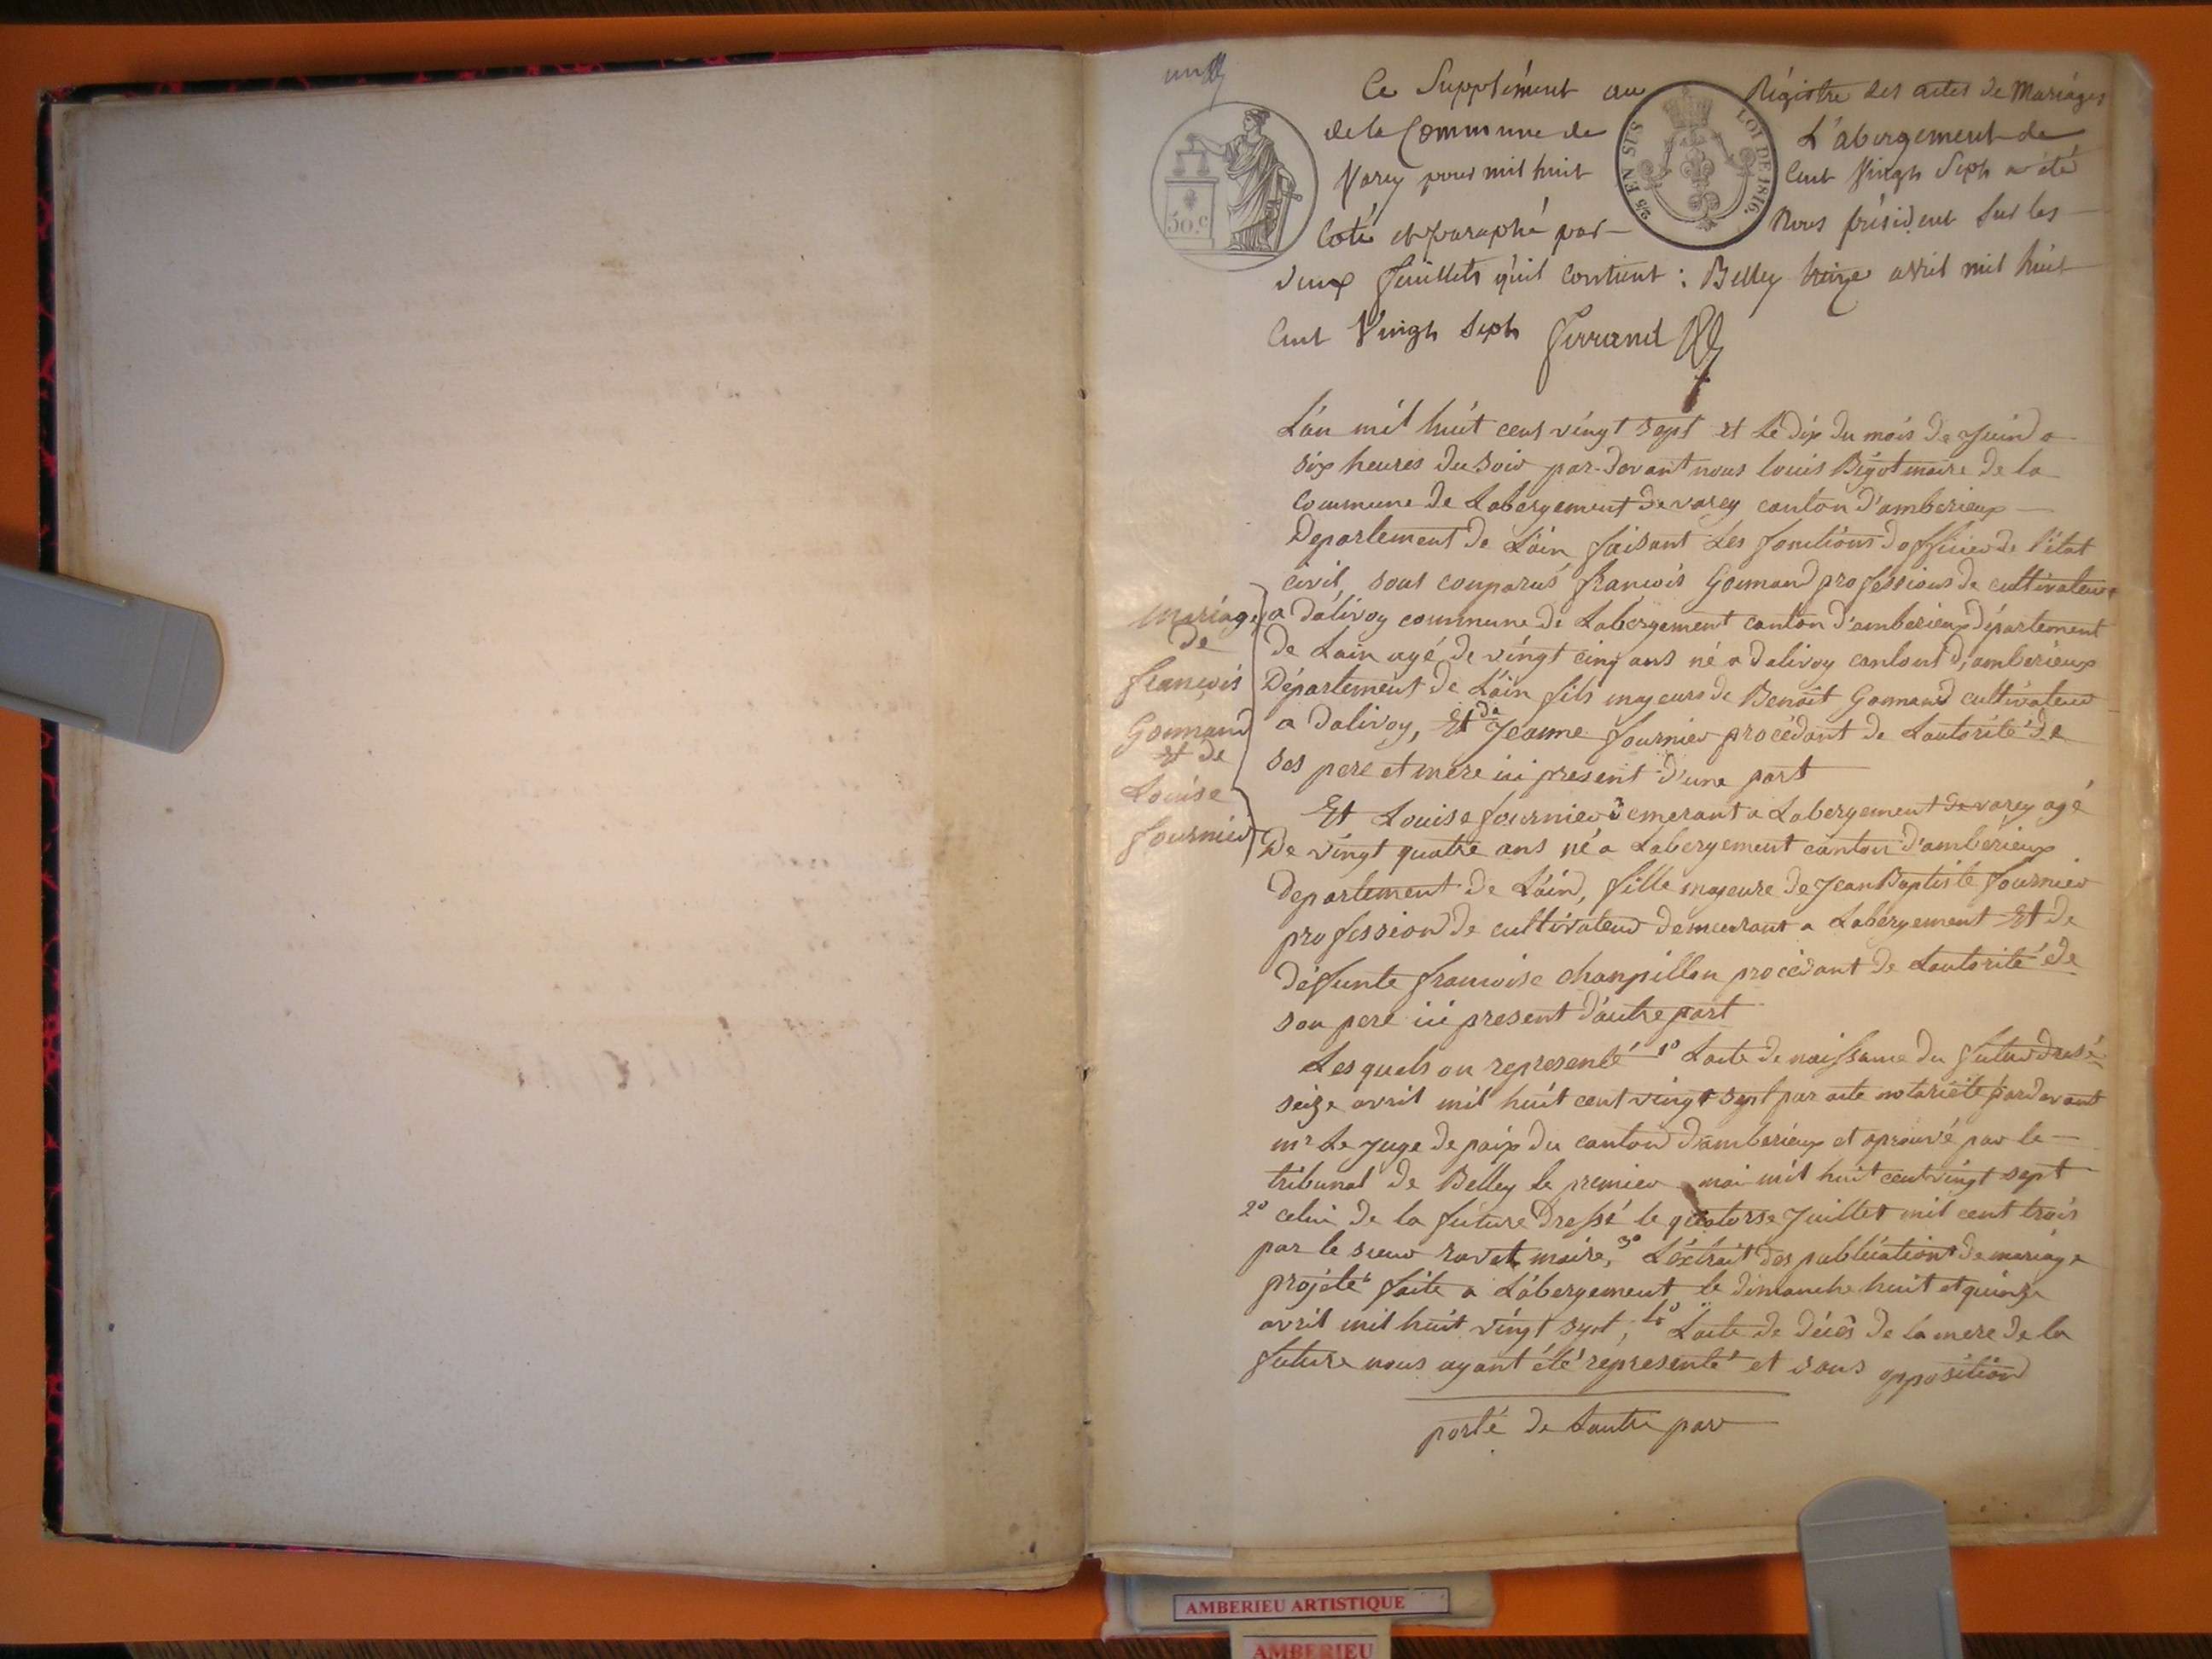 un
Ce Supplément au Régistre des actes de Mariages
de la Commune de L'abergement de
Varey pour mil huit Cent Vingt Sept a été
Coté et paraphé par Nous président Sur les
deux feuillets qu'il Contient : Belley treize avril mil huit
Cent Vingt Sept Ferrand
50.c
2/5 EN SUS
LOI DE 1816.
L'an mil huit cent vingt sept et le dix du mois de Juin a
six heures du soir par-devant nous louis Bigot maire de la
Commune de Labergement de varey canton d'amberieux
Departement de L'ain faisant les fonctions d'officier de l'état
civil, sont comparus françois Gonnand professions de cultivateur
a dalivoy commune de Labergement canton d'amberieux département
de Lain agé de vingt cinq ans né a dalivoy canlont d'amberieux
Département de L'ain fils majeurs de Benoit Gonnand cultivateur
a dalivoy, Et de Jeanne fournier procédant de Lautorité de
ses pere et mere ici present d'une part
mariage
de
françois
Gonnand
et de
Louise
fournier
Et Louise fournier demerant a Labergement de varey agé
De vingt quatre ans né a Labergement canton d'amberieux
Departement de L'ain, fille majeure de Jean Baptiste fournier
profession de cultivateur demeurant a Labergement Et de
défunte francoise chanpillon procédant de Lautorité de
son pere ici present d'autre part
Les quels on representé 1º Lacte de naissance du futur dresé
seize avril mil huit cent vingt sept par acte notarieté pardevant
mr Le Juge de paix du canton d'amberieux et aprouvé par le
tribunal de Belley le premier mai mil huit cent vingt sept
2º celui de la future dressé le quatorse Juillet mil cent trois
par le sieur ravet maire, 3º L'éxtrait des publications de mariage
projeté faite a L'abergement le dimanche huit et quinze
avril mil huit vingt sept, 4º Lacte de décès de la mere de la
future nous ayant été representé et sans opposition
porté de Lautre par
AMBERIEU ARTISTIQUE
AMBERIEU